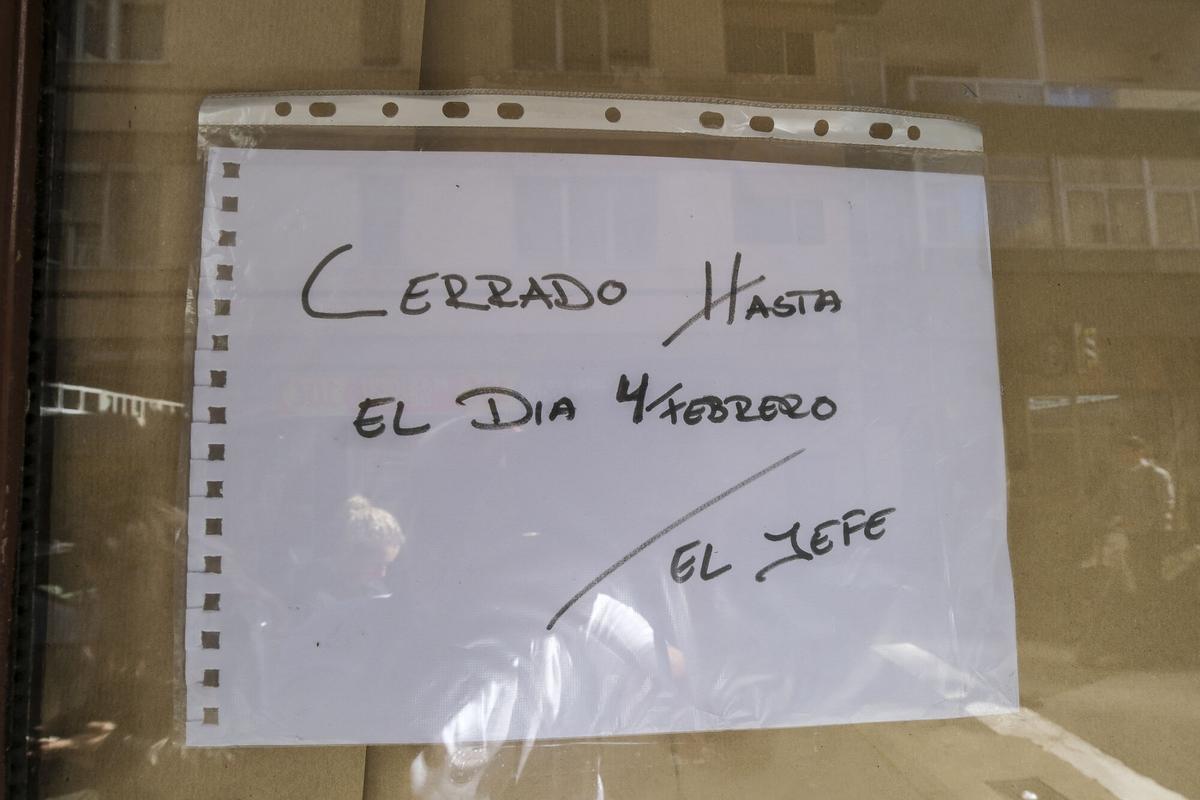 CERRADO HASTA
EL DIA 4 FEBRERO
EL JEFE